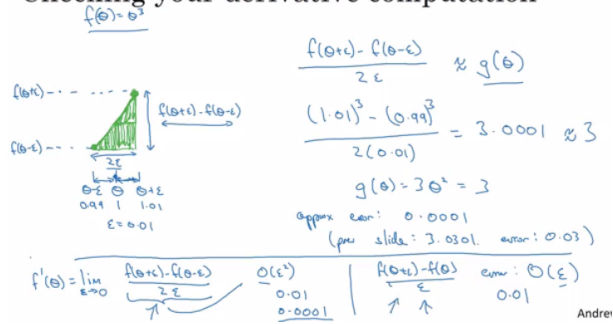 Checking your derivative computation
f(θ) = θ³
f(θ+ε)
f(θ+ε) - f(θ-ε)
f(θ-ε)
2ε
θ-ε θ θ+ε
0.99 1 1.01
ε = 0.01
f(θ+ε) - f(θ-ε) / 2ε ≈ g(θ)
(1.01)³ - (0.99)³ / 2(0.01) = 3.0001 ≈ 3
g(θ) = 3θ² = 3
approx error: 0.0001
(prev slide: 3.0301. error: 0.03)
f'(θ) = lim ε→0 f(θ+ε) - f(θ-ε) / 2ε
O(ε²)
0.01
0.0001
f(θ+ε) - f(θ) / ε error: O(ε)
0.01
Andre